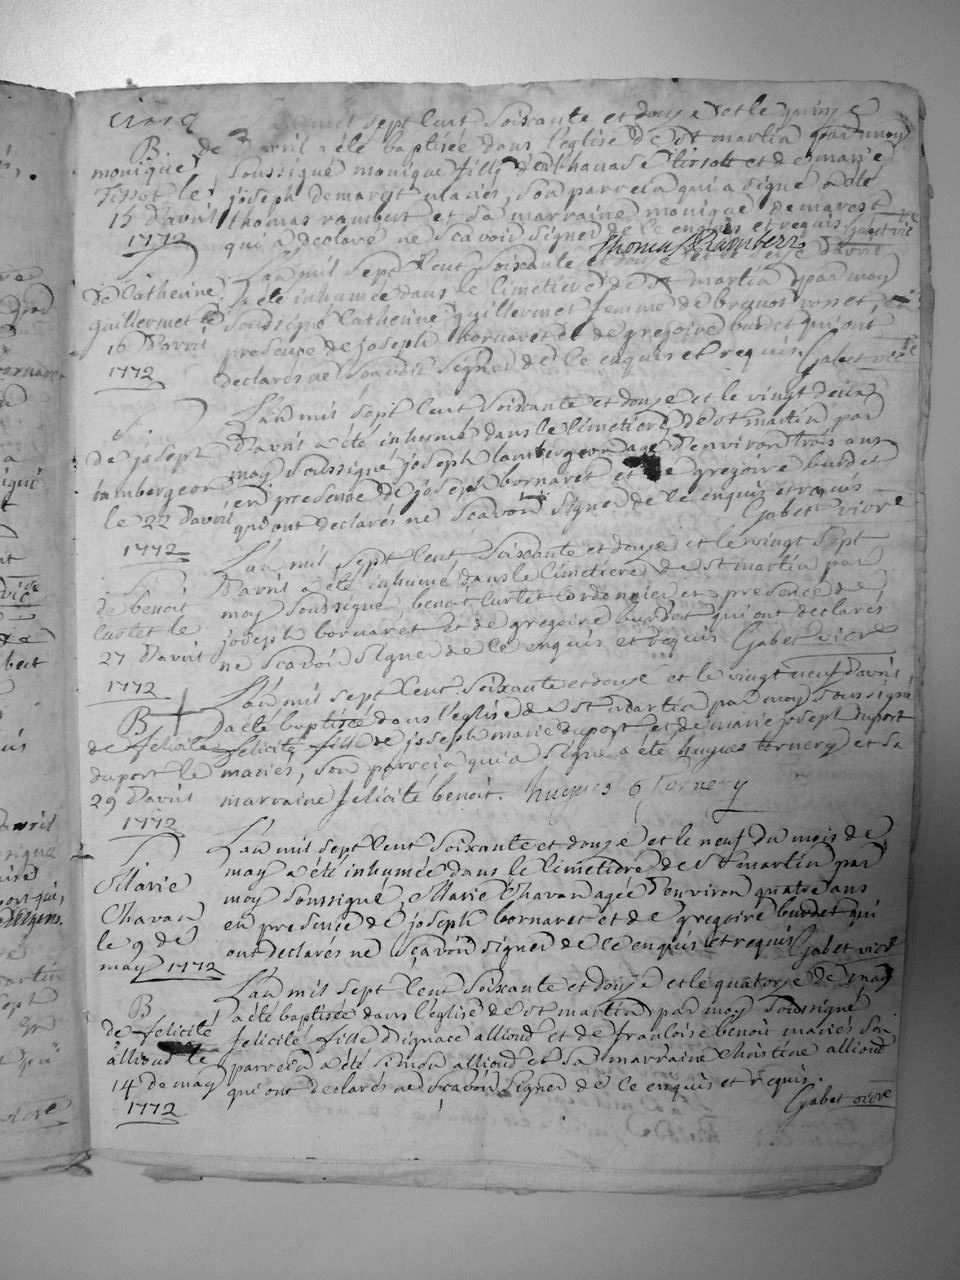 cinq
L'an mil sept cent soixante et douze et le quinze
B de
monique
tissot le
15 d'avril
1772
d'avril a été baptisée dans l'église de st martin par moy
soussigné monique fille d'athanase tissot et de marie
joseph demarest mariés, son parrein qui a signé a été
thomas rambert et sa marraine monique demarest
qui a declaré ne scavoir signer de ce enquis et requis Gabet vicre
Thomas Rambert
S
de Catherine
guillermet le
16 d'avril
1772
L'an mil sept cent soixante et douze et le seize d'avril
a été inhumée dans le cimetiere de st martin par moy
soussigné Catherine guillermet femme de rosset en
presence de joseph bornaret et de gregoire burdet qui ont
declarés ne scavoir signer de ce enquis et requis. Gabet vicre
S
de joseph
lambergeon
le 22 d'avril
1772
L'an mil sept cent soixante et douze et le vingt deux
d'avril a été inhumé dans le cimetiere de st martin par
moy soussigné joseph lambergeon agé d'environ trois ans
en presence de joseph bornaret et de gregoire burdet
qui ont declarés ne scavoir signer de ce enquis et requis
Gabet vicre
S
de benoit
curtet le
27 d'avril
1772
L'an mil sept cent soixante et douze et le vingt sept
d'avril a été inhumé dans le cimetiere de st martin par
moy soussigné, benoit curtet cordonnier en presence de
joseph bornaret et de gregoire burdet qui ont declarés
ne scavoir signer de ce enquis et requis Gabet vicre
B
de felicité
duport le
29 d'avril
1772
L'an mil sept cent soixante et douze et le vingt neuf d'avril
a été baptisée dans l'église de st martin par moy soussigné
felicité fille de joseph marie duport et de marie joseph duport
mariés, son parrein qui a signé a été hugues ternery et sa
marraine felicité benoit. hugues ternery
S
Marie
Chavan
le 9 de
may 1772
L'an mil sept cent soixante et douze et le neuf du mois de
may a été inhumée dans le cimetiere de st martin par
moy soussigné, Marie Chavan agée d'environ quatre ans
en presence de joseph bornaret et de gregoire burdet qui
ont declarés ne scavoir signer de ce enquis et requis Gabet vicre
B
de felicité
alliod le
14 de may
1772
L'an mil sept cent soixante et douze et le quatorze de may
a été baptisée dans l'église de st martin par moy soussigné
felicité fille d'ignace alliod et de francoise benoit mariés son
parrein a été simon alliod et sa marraine christine alliod
qui ont declarés ne scavoir signer de ce enquis et requis.
Gabet vicre